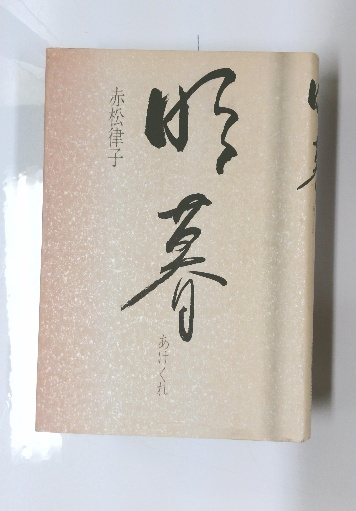 明暮
あけくれ
赤松律子
明暮